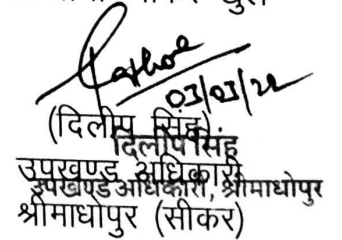 03/03/22
(दिलीप सिंह)
दिलीप सिंह
उपखण्ड अधिकारी
उपखण्ड अधिकारी, श्रीमाधोपुर
श्रीमाधोपुर (सीकर)